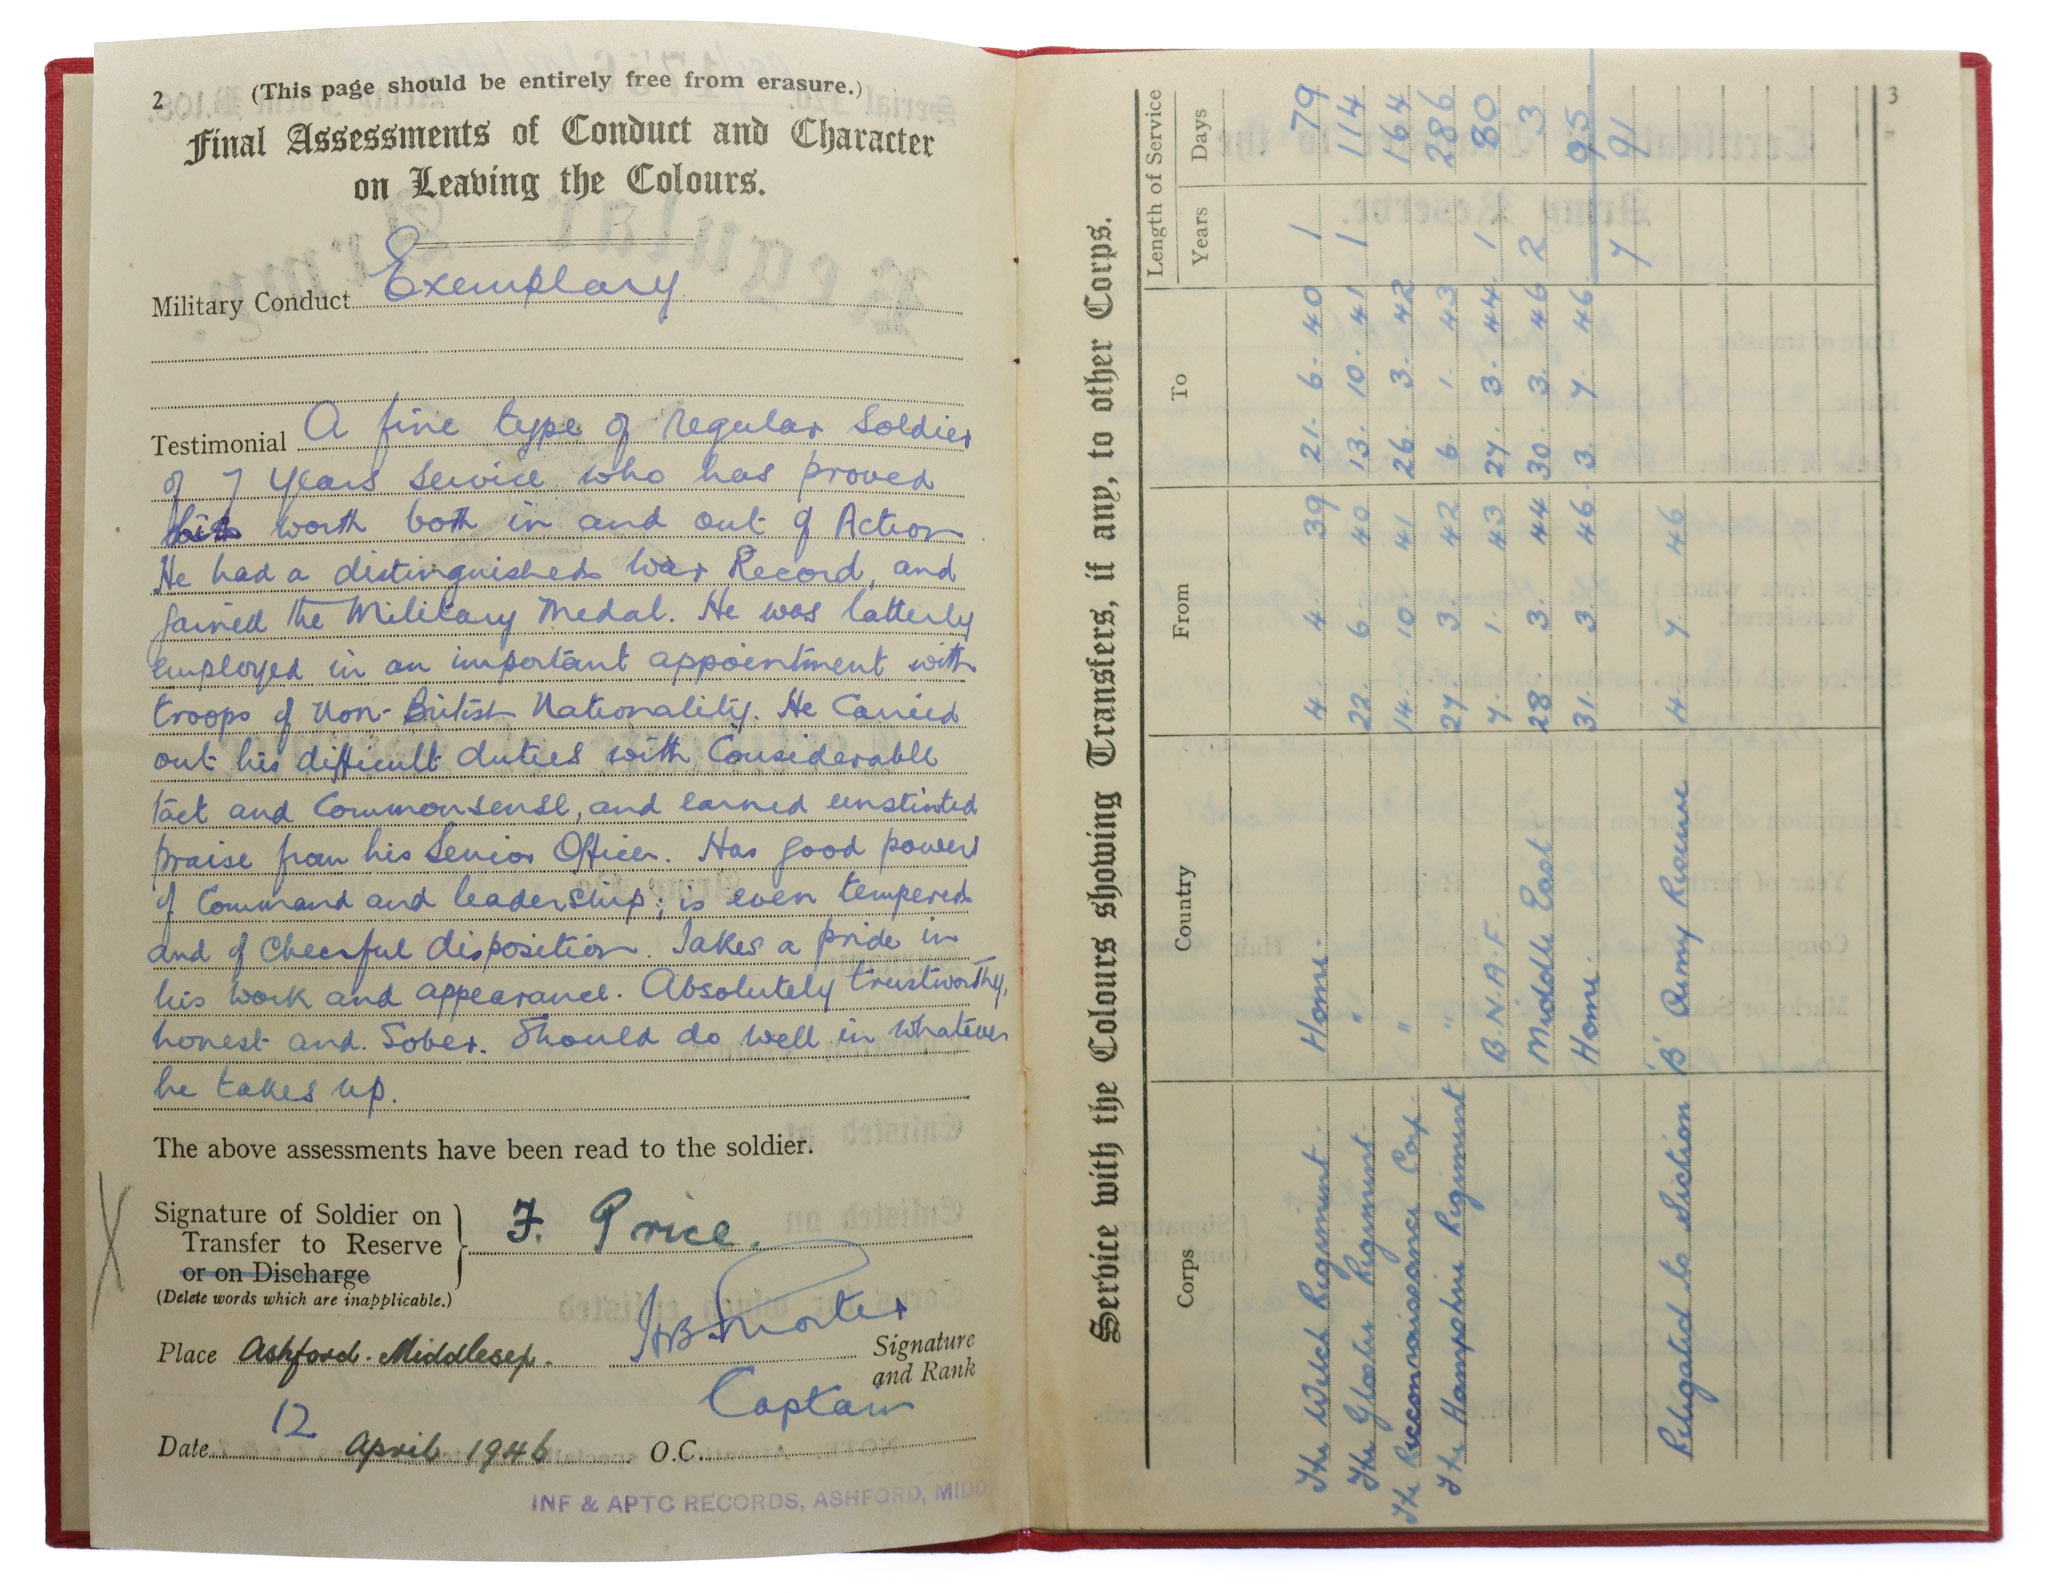 2
(This page should be entirely free from erasure.)
Final Assessments of Conduct and Character
on Leaving the Colours.
Military Conduct Exemplary
Testimonial A fine type of regular Soldier
of 7 Years Service who has proved
his worth both in and out of Action.
He had a distinguished War Record, and
gained the Military Medal. He was latterly
employed in an important appointment with
troops of Non-British Nationality. He Carried
out his difficult duties with Considerable
tact and Commonsense, and earned unstinted
praise from his Senior Officer. Has good powers
of Command and leadership; is even tempered
and of cheerful disposition. Takes a pride in
his work and appearance. Absolutely trustworthy,
honest and Sober. Should do well in whatever
he takes up.
The above assessments have been read to the soldier.
Signature of Soldier on
Transfer to Reserve
or on Discharge
F. Price.
(Delete words which are inapplicable.)
Place Ashford. Middlesex.
Signature
and Rank
Captain
Date 12 April 1946 O.C.
INF & APTC RECORDS, ASHFORD, MIDD
3
Service with the Colours showing Transfers, if any, to other Corps.
Corps Country From To Length of Service
Years Days
The Welch Regiment. Home. 4. 4. 39 21. 6. 40 1 79
The Gloster Regiment. " 22. 6. 40 13. 10. 41 1 114
The Reconnaissance Corp. " 14. 10 41 26. 3. 42 164
The Hampshire Regiment " 27 3. 42 6. 1. 43 286
B.N.A.F. 7. 1. 43 27. 3. 44. 1 80
Middle East. 28 3. 44 30. 3. 46 2 3
Home. 31. 3. 46. 3. 4. 46. 95
7 91
Relegated to Section 'B' Army Reserve 4. 4. 46